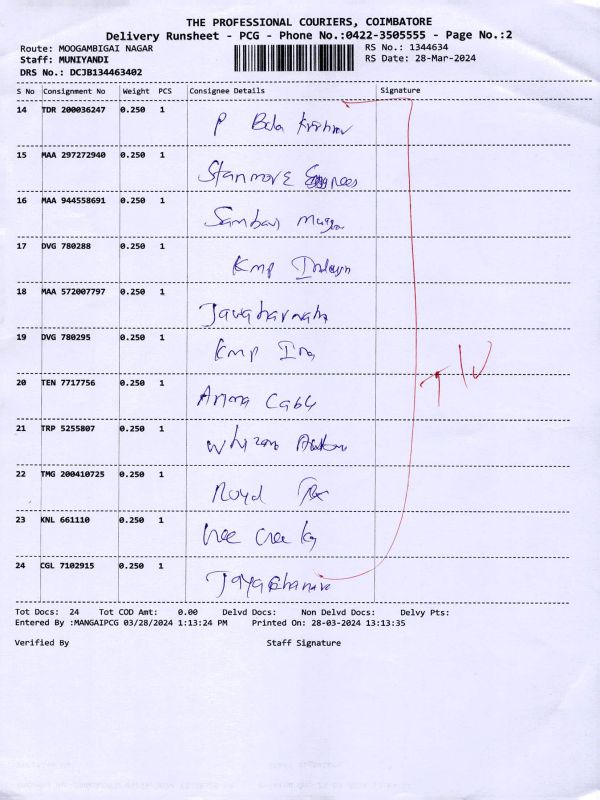 THE PROFESSIONAL COURIERS, COIMBATORE
Delivery Runsheet - PCG - Phone No.:0422-3505555 - Page No.:2
Route: MOOGAMBIGAI NAGAR RS No.: 1344634
Staff: MUNIYANDI RS Date: 28-Mar-2024
DRS No.: DCJB134463402
S No Consignment No Weight PCS Consignee Details Signature
14 TDR 200036247 0.250 1 P Bala Krishna
15 MAA 297272940 0.250 1 Stanmore
16 MAA 944558691 0.250 1
17 DVG 780288 0.250 1 Kmp
18 MAA 572007797 0.250 1
19 DVG 780295 0.250 1 Kmp
20 TEN 7717756 0.250 1
21 TRP 5255807 0.250 1
22 TMG 200410725 0.250 1 Royal
23 KNL 661110 0.250 1
24 CGL 7102915 0.250 1
Tot Docs: 24 Tot COD Amt: 0.00 Delvd Docs: Non Delvd Docs: Delvy Pts:
Entered By :MANGAIPCG 03/28/2024 1:13:24 PM Printed On: 28-03-2024 13:13:35
Verified By Staff Signature